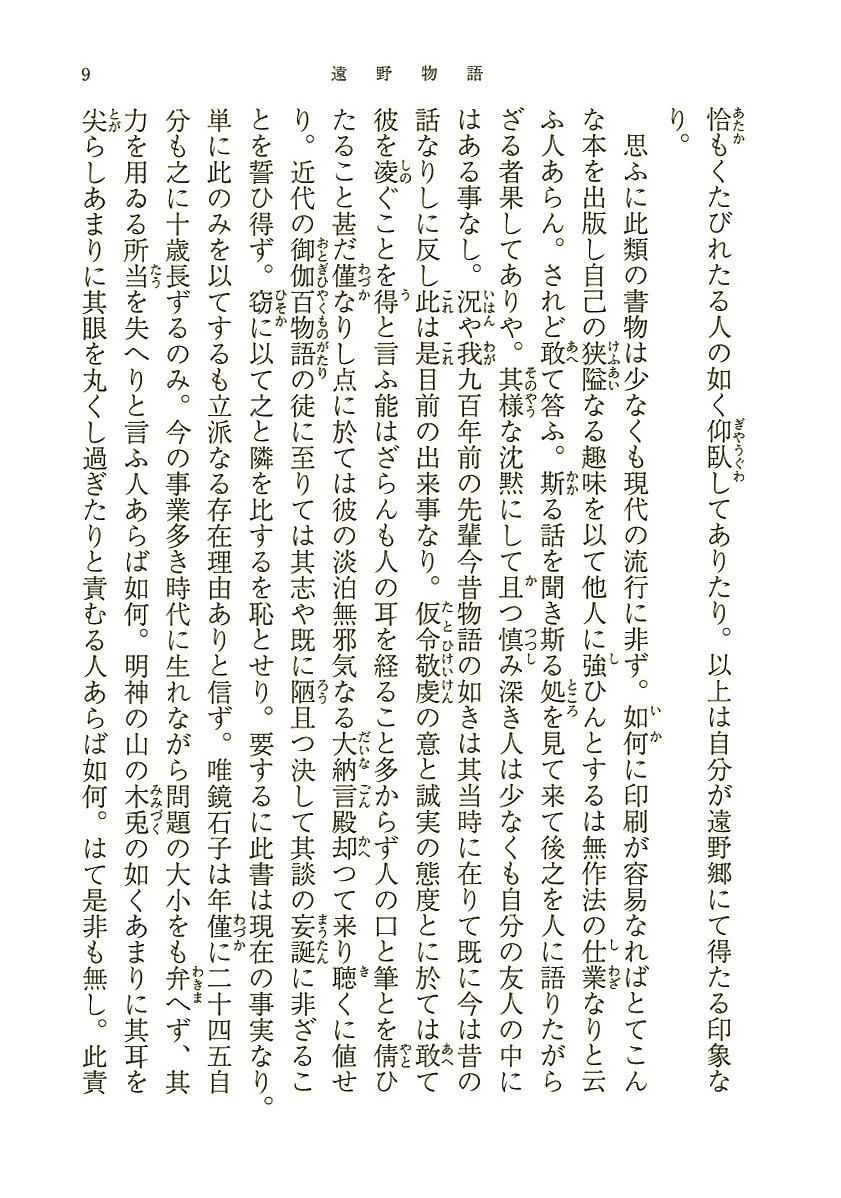 9
遠野物語
恰もくたびれたる人の如く仰臥してありたり。以上は自分が遠野郷にて得たる印象な
り。
思ふに此類の書物は少なくも現代の流行に非ず。如何に印刷が容易なればとてこん
な本を出版し自己の狭隘なる趣味を以て他人に強ひんとするは無作法の仕業なりと云
ふ人あらん。されど敢て答ふ。斯る話を聞き斯る処を見て来て後之を人に語りたがら
ざる者果してありや。其様な沈黙にして且つ慎み深き人は少なくも自分の友人の中に
はある事なし。況や我九百年前の先輩今昔物語の如きは其当時に在りて既に今は昔の
話なりしに反し此は是目前の出来事なり。仮令敬虔の意と誠実の態度とに於ては敢て
彼を凌ぐことを得と言ふ能はざらんも人の耳を経ること多からず人の口と筆とを倩ひ
たること甚だ僅なりし点に於ては彼の淡泊無邪気なる大納言殿却つて来り聴くに値せ
り。近代の御伽百物語の徒に至りては其志や既に陋且つ決して其談の妄誕に非ざるこ
とを誓ひ得ず。窃に以て之と隣を比するを恥とせり。要するに此書は現在の事実なり。
単に此のみを以てするも立派なる存在理由ありと信ず。唯鏡石子は年僅に二十四五自
分も之に十歳長ずるのみ。今の事業多き時代に生れながら問題の大小をも弁へず、其
力を用ゐる所当を失へりと言ふ人あらば如何。明神の山の木兎の如くあまりに其耳を
尖らしあまりに其眼を丸くし過ぎたりと責むる人あらば如何。はて是非も無し。此責